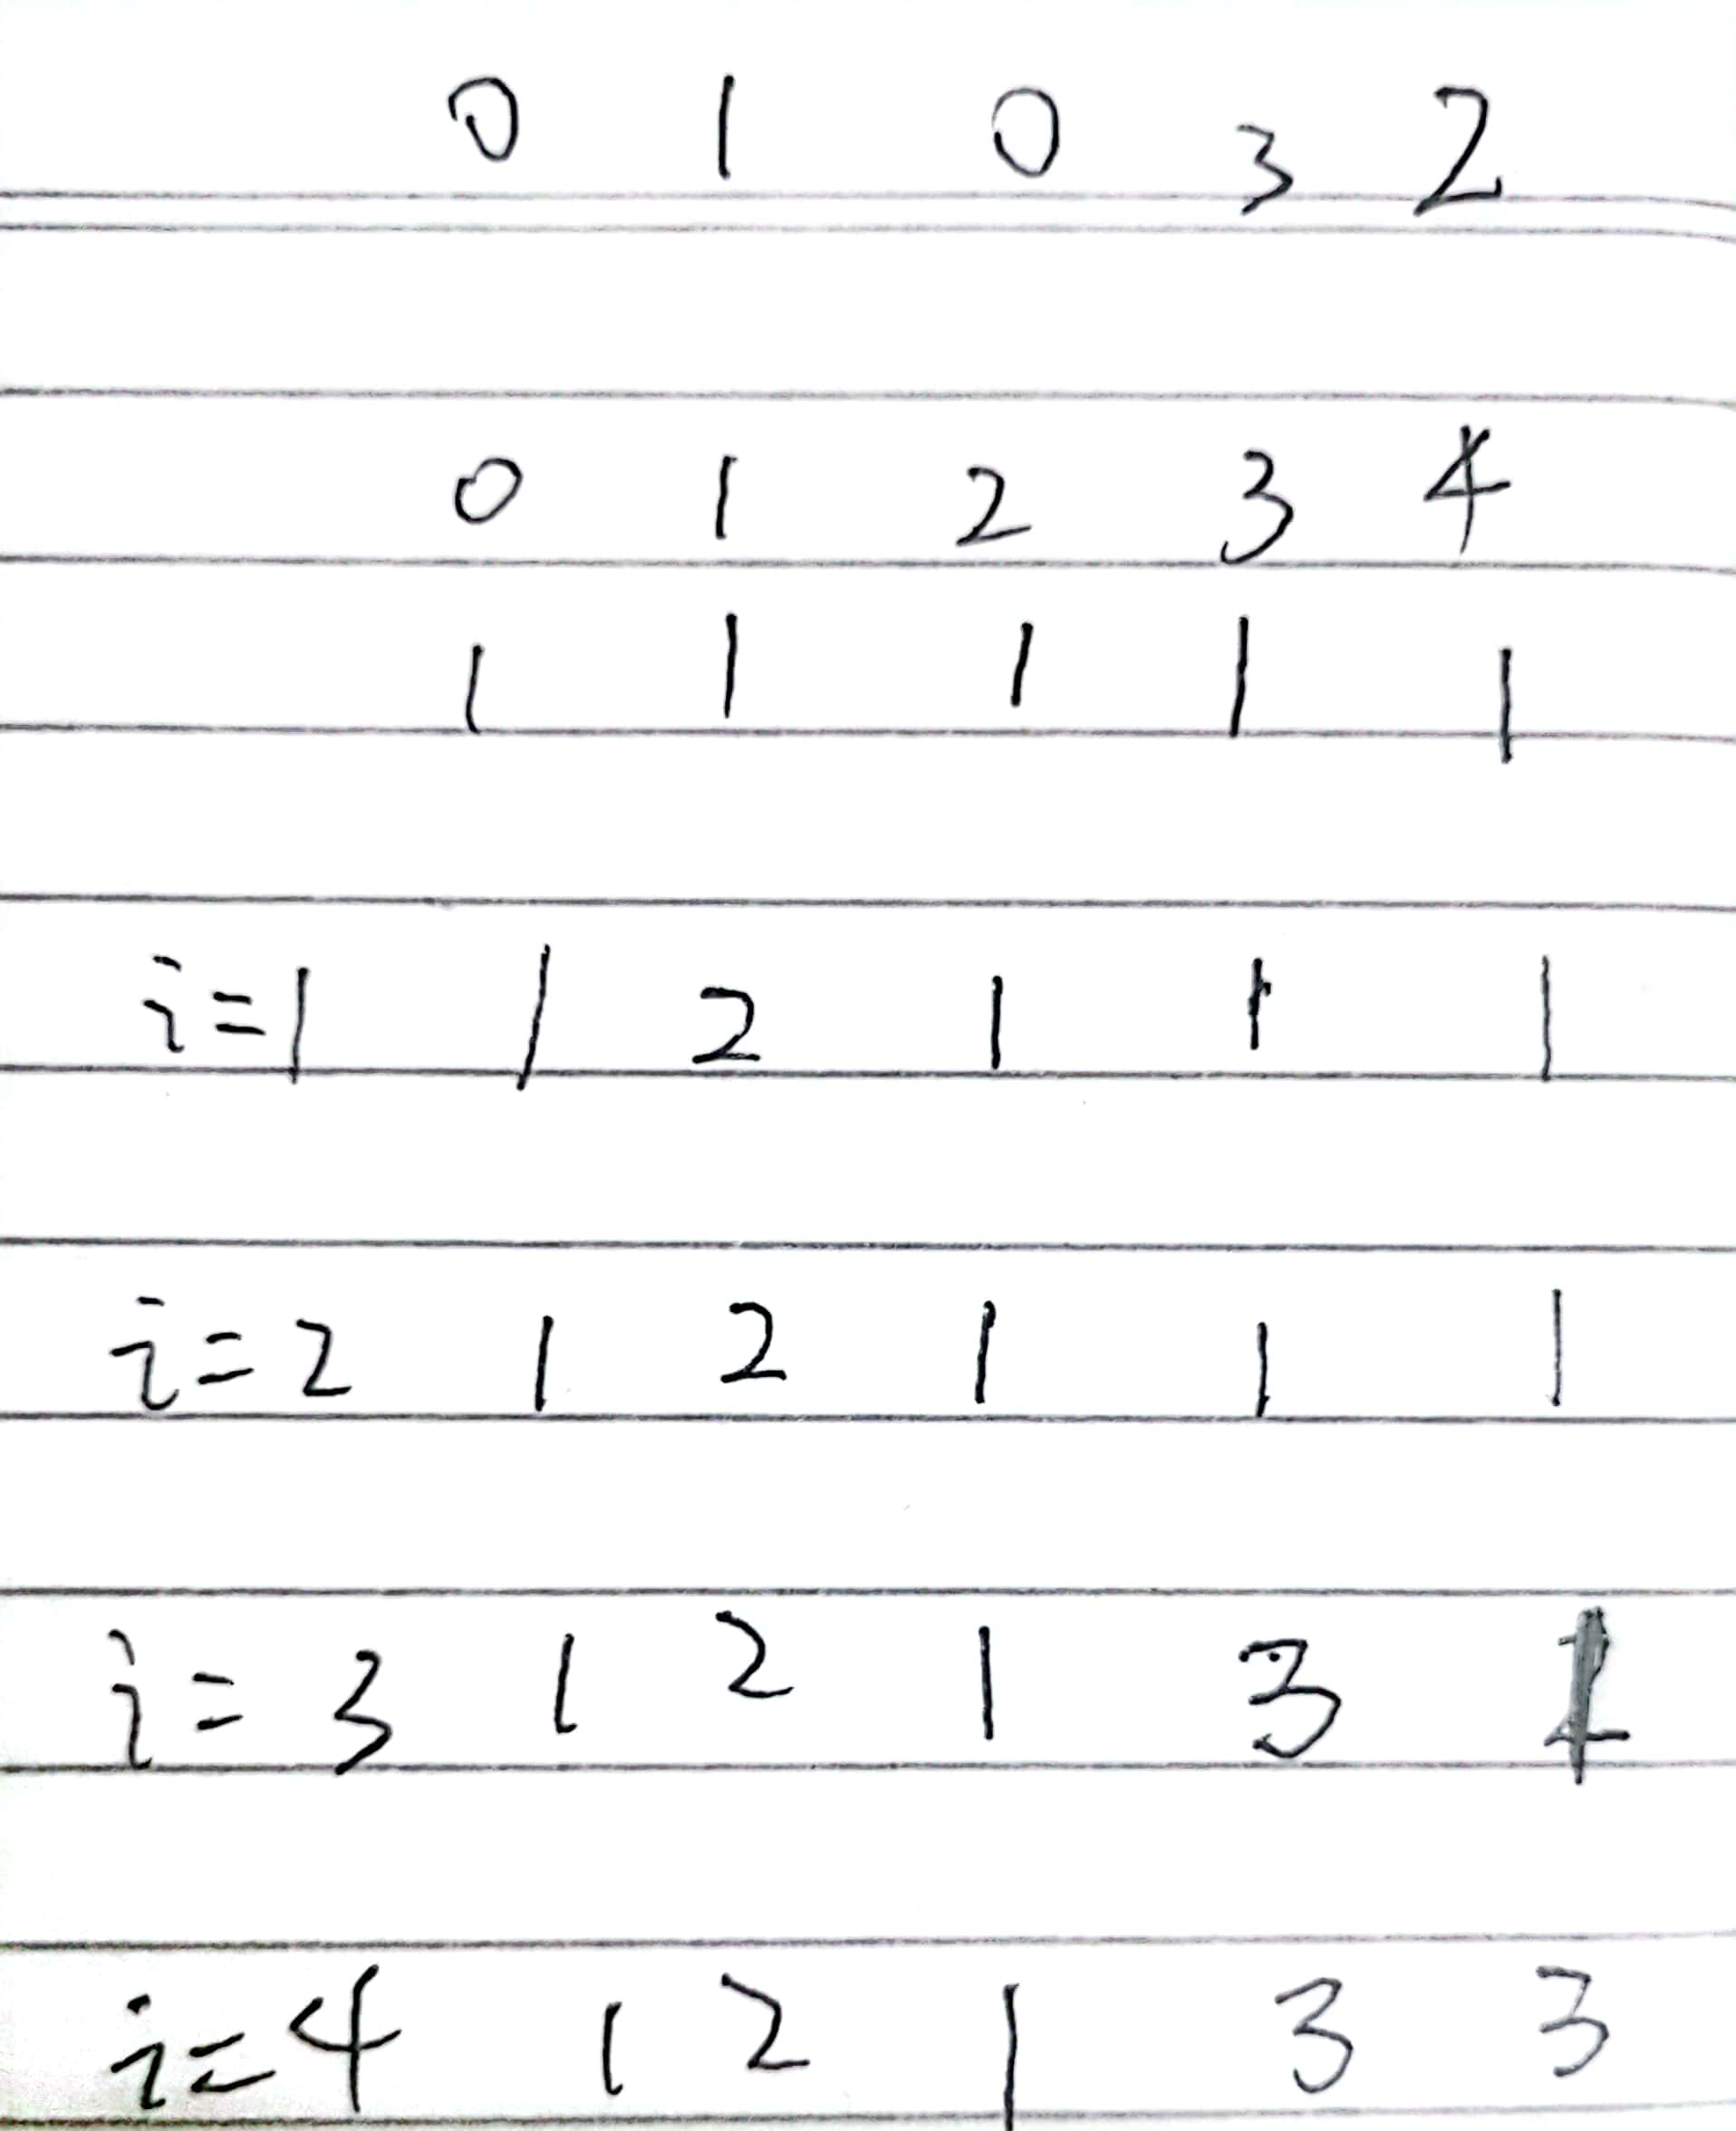 0 1 0 3 2
0 1 2 3 4
1 1 1 1 1
i=1 1 2 1 1 1
i=2 1 2 1 1 1
i=3 1 2 1 3 1
i=4 1 2 1 3 3